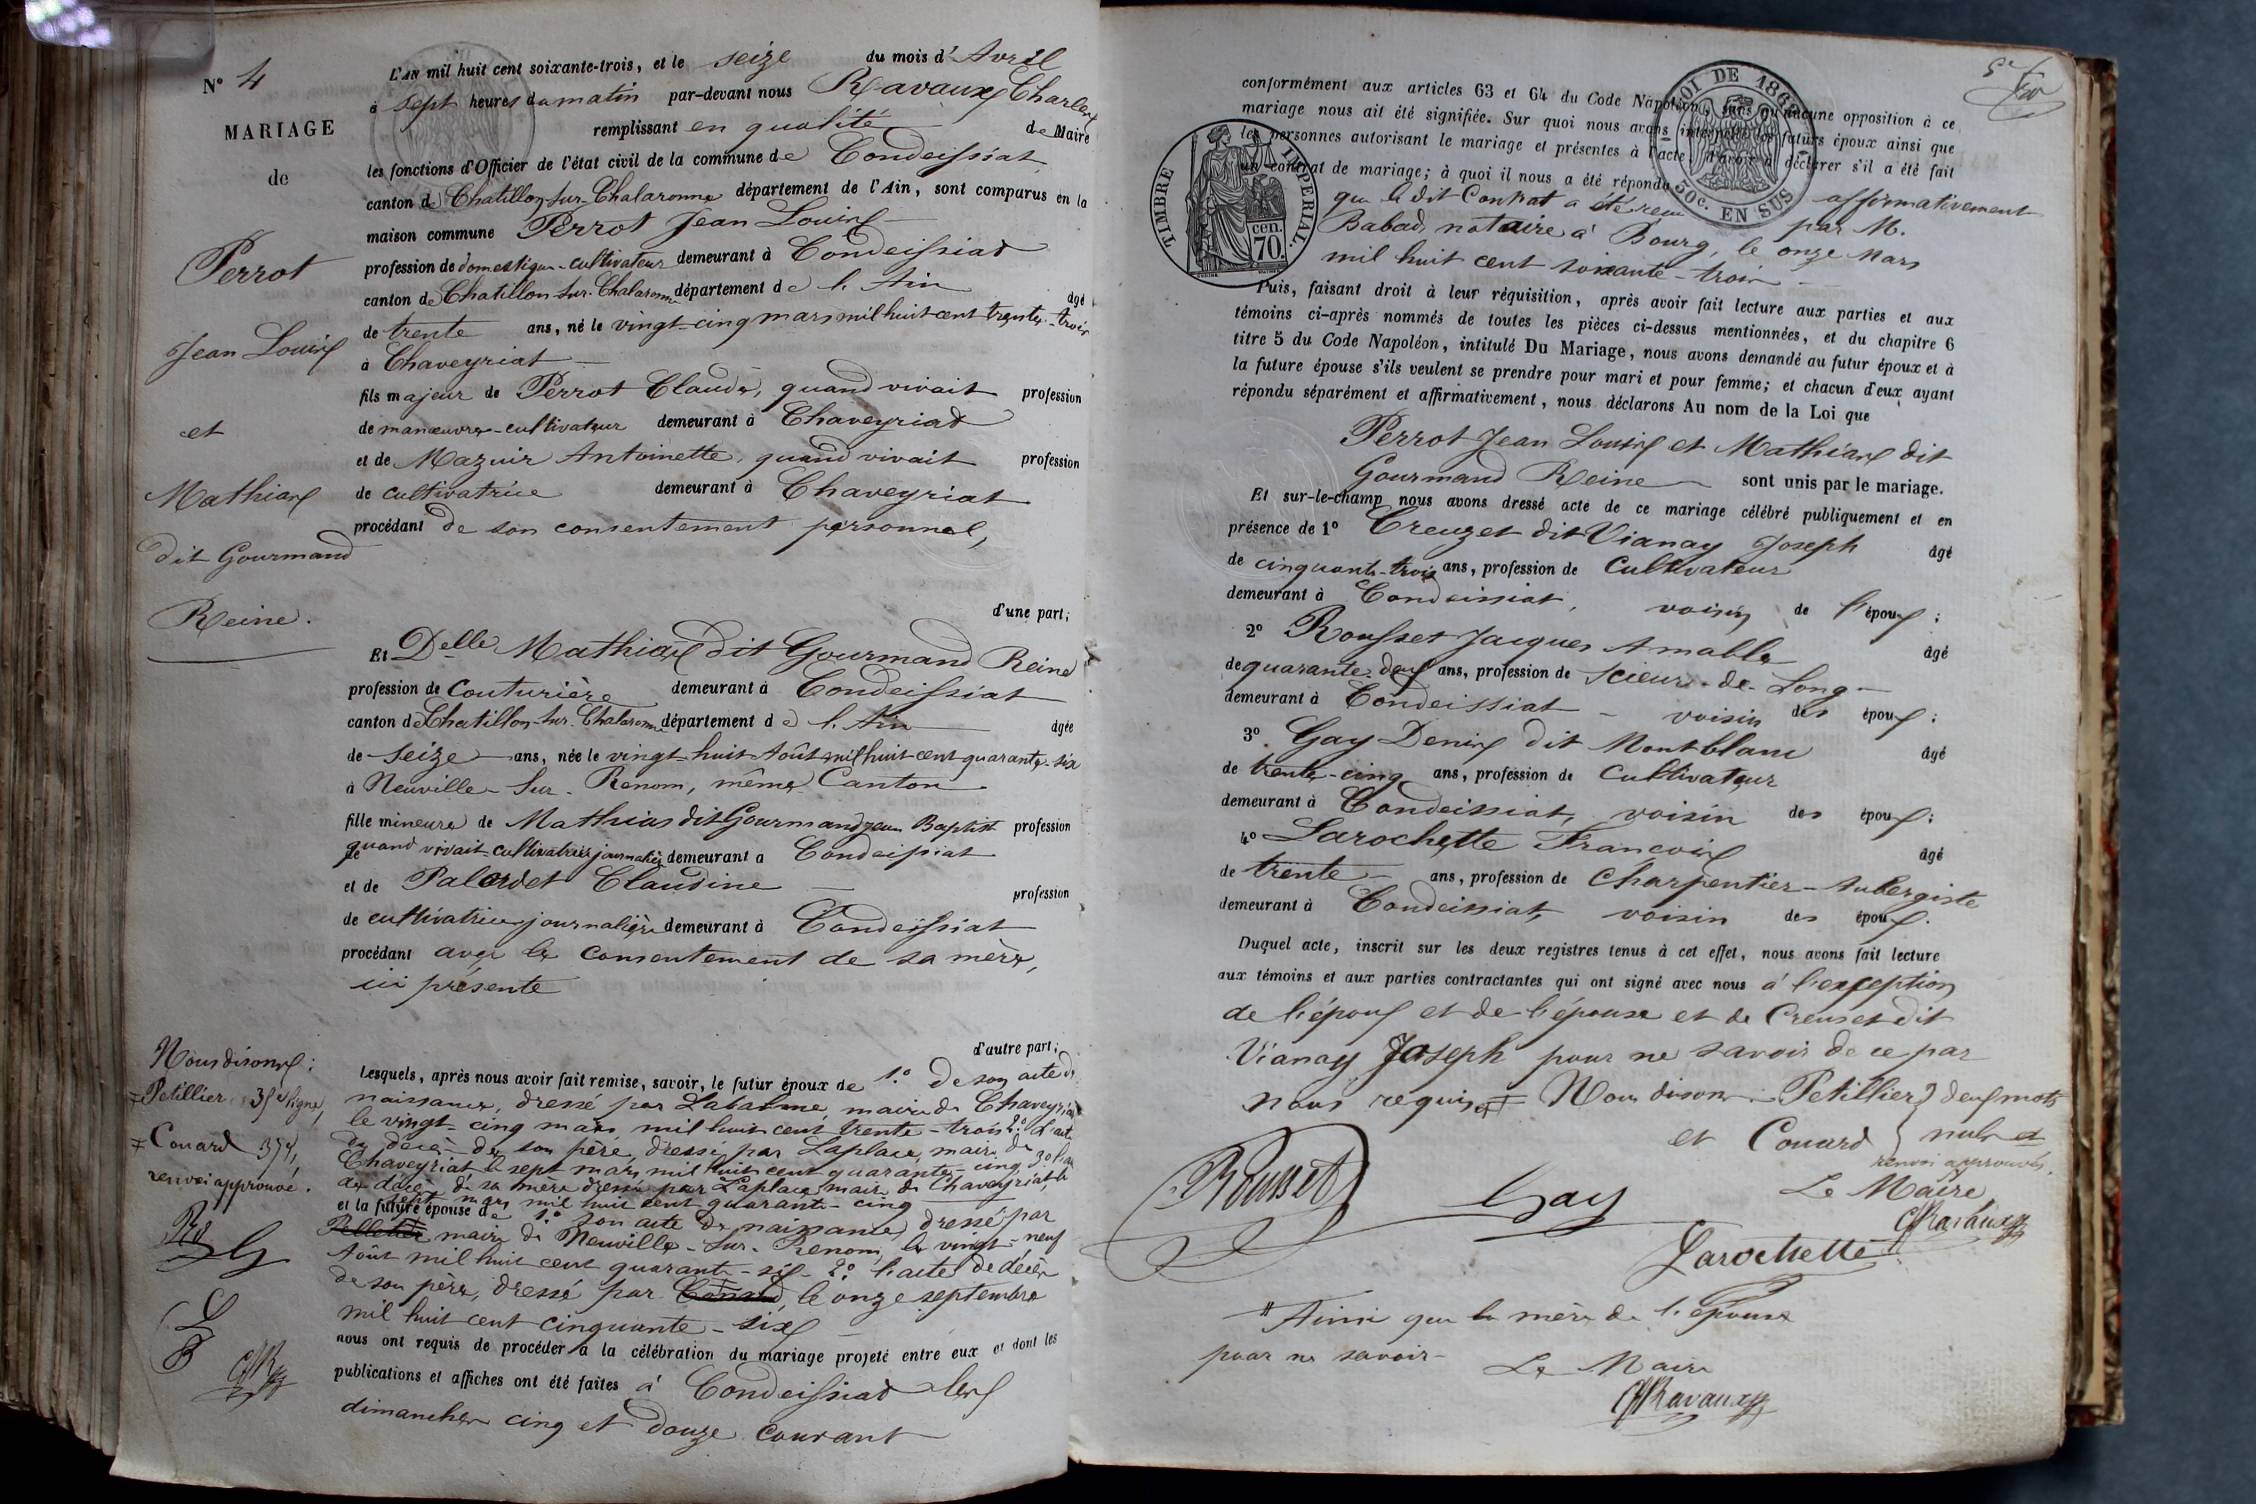 N° 4
MARIAGE
de
Perrot
Jean Louis
et
Mathias
dit Gourmand
Reine.
L'AN mil huit cent soixante-trois, et le seize du mois d'Avril
à sept heures du matin par-devant nous Ravaux Charles
remplissant en qualité de Maire
les fonctions d'Officier de l'état civil de la commune de Condeissiat
canton de Chatillon-sur-Chalaronne département de l'Ain, sont comparus en la
maison commune Perrot Jean Louis
profession de domestique-cultivateur demeurant à Condeissiat
canton de Chatillon-sur-Chalaronne département de l'Ain âgé
de trente ans, né le vingt-cinq mars mil huit cent trente-trois
à Chaveyriat
fils majeur de Perrot Claude, quand vivait profession
de manœuvre-cultivateur demeurant à Chaveyriat
et de Mazuir Antoinette, quand vivait profession
de cultivatrice demeurant à Chaveyriat
procédant de son consentement personnel,
d'une part;
Et Delle Mathias dit Gourmand Reine
profession de Couturière demeurant à Condeissiat
canton de Chatillon-sur-Chalaronne département de l'Ain âgée
de seize ans, née le vingt-huit Août mil huit cent quarante-six
à Neuville-sur-Renom, même Canton
fille mineure de Mathias dit Gourmand jean Baptist profession
de quand vivait cultivateur journalier demeurant à Condeissiat
et de Palordet Claudine profession
de cultivatrice journalière demeurant à Condeissiat
procédant avec le consentement de sa mère,
ici présente
d'autre part;
Nous disons:
≠Petillier 35e ligne,
≠Couard 37e,
renvoi approuvé.
Lesquels, après nous avoir fait remise, savoir, le futur époux de 1.° de son acte de
naissance, dressé par Labalme, maire de Chaveyriat
le vingt-cinq mars mil huit cent trente-trois 2.° l'acte
de décès de son père, dressé par Laplace, maire de
Chaveyriat le sept mars mil huit cent quarante-cinq 3° l'acte
de décès de sa mère dressé par Laplace maire de Chaveyriat, le
sept mars mil huit cent quarante-cinq
et la future épouse de 1.° son acte de naissance, dressé par
maire de Neuville-sur-Renom, le vingt-neuf
Août mil huit cent quarante-six - 2.° l'acte de décès
de son père, dressé par , le onze septembre
mil huit cent cinquante-six
nous ont requis de procéder à la célébration du mariage projeté entre eux et dont les
publications et affiches ont été faites à Condeissiat les
dimanches cinq et douze courant
conformément aux articles 63 et 64 du Code Napoléon, sans qu'aucune opposition à ce
mariage nous ait été signifiée. Sur quoi nous avons interpellé les futurs époux ainsi que
les personnes autorisant le mariage et présentes à l'acte, d'avoir à déclarer s'il a été fait
un contrat de mariage; à quoi il nous a été répondu affirmativement
que le dit Contrat a été reçu par M.
Babad, notaire à Bourg, le onze Mars
mil huit cent soixante-trois
TIMBRE IMPERIAL.
70. cen.
LOI DE 1862
50c. EN SUS
Puis, faisant droit à leur réquisition, après avoir fait lecture aux parties et aux
témoins ci-après nommés de toutes les pièces ci-dessus mentionnées, et du chapitre 6
titre 5 du Code Napoléon, intitulé Du Mariage, nous avons demandé au futur époux et à
la future épouse s'ils veulent se prendre pour mari et pour femme; et chacun d'eux ayant
répondu séparément et affirmativement, nous déclarons Au nom de la Loi que
Perrot Jean Louis et Mathias dit
Gourmand Reine sont unis par le mariage.
Et sur-le-champ nous avons dressé acte de ce mariage célébré publiquement et en
présence de 1° Creuzet dit Vianay Joseph âgé
de cinquante-trois ans, profession de Cultivateur
demeurant à Condeissiat, voisin de l'époux;
2° Rousset Jacques Amable âgé
de quarante-deux ans, profession de Scieur-de-Long
demeurant à Condeissiat voisin des époux;
3° Gay Denis dit Montblanc âgé
de trente-cinq ans, profession de Cultivateur
demeurant à Condeissiat, voisin des époux;
4° Larochette François âgé
de trente ans, profession de Charpentier-Aubergiste
demeurant à Condeissiat, voisin des époux.
Duquel acte, inscrit sur les deux registres tenus à cet effet, nous avons fait lecture
aux témoins et aux parties contractantes qui ont signé avec nous à l'exception
de l'époux et de l'épouse et de Creuset dit
Vianay Joseph pour ne savoir de ce par
nous requis ≠ Nous disons: Petillier } deux mots
et Couard } nuls et
renvoi approuvés.
Le Maire,
CHRavaux
Rousset
Gay
Larochette
# Ainsi que la mère de l'épouse
pour ne savoir
Le Maire
CHRavaux